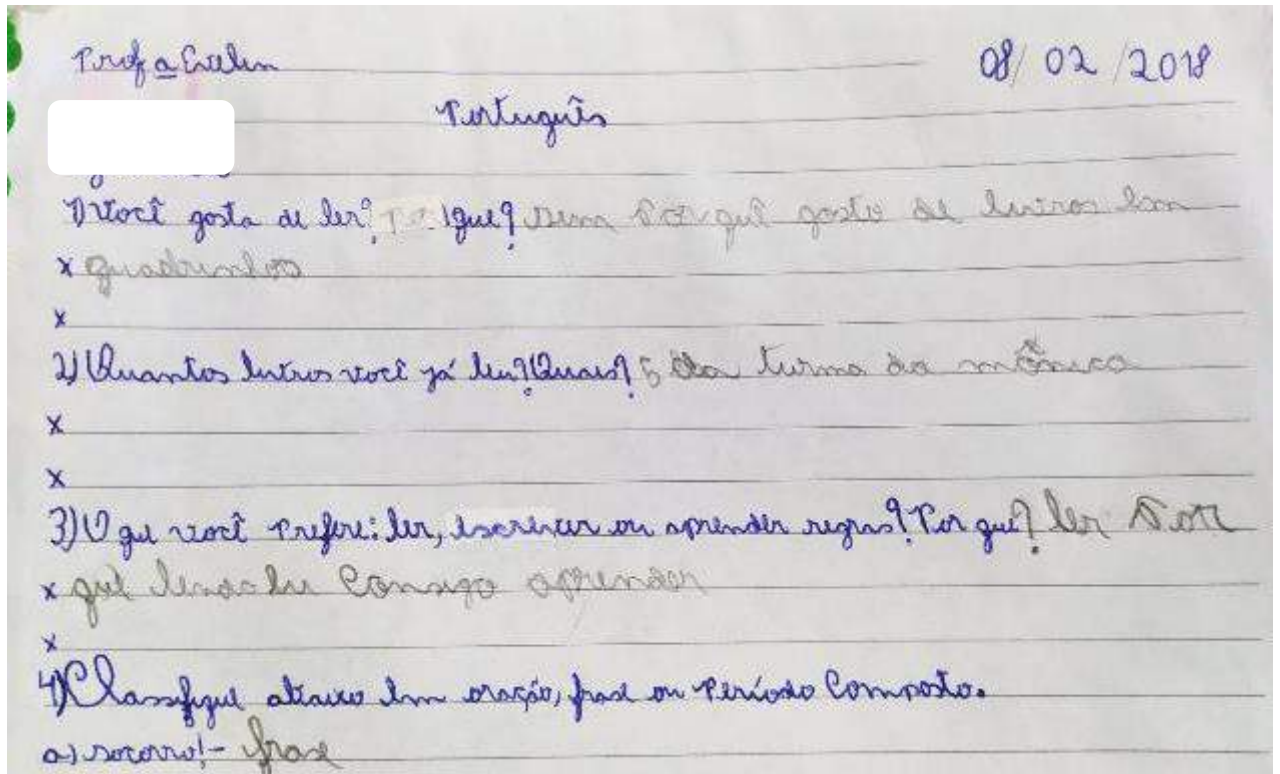 Profa Evelin 08/02/2018
Português
1) Você gosta de ler? Por que? Sim Por quê gosto de livros em
x quadrinhos
x
2) Quantos livros você já leu? Quais? 5 da turma da mônica
x
x
3) O que você Prefere: ler, escrever ou aprender regras? Por que? ler Por
x quê lendo eu Consigo aprender
x
4) Classifique abaixo em oração, frase ou Período Composto.
a) socorro! - frase